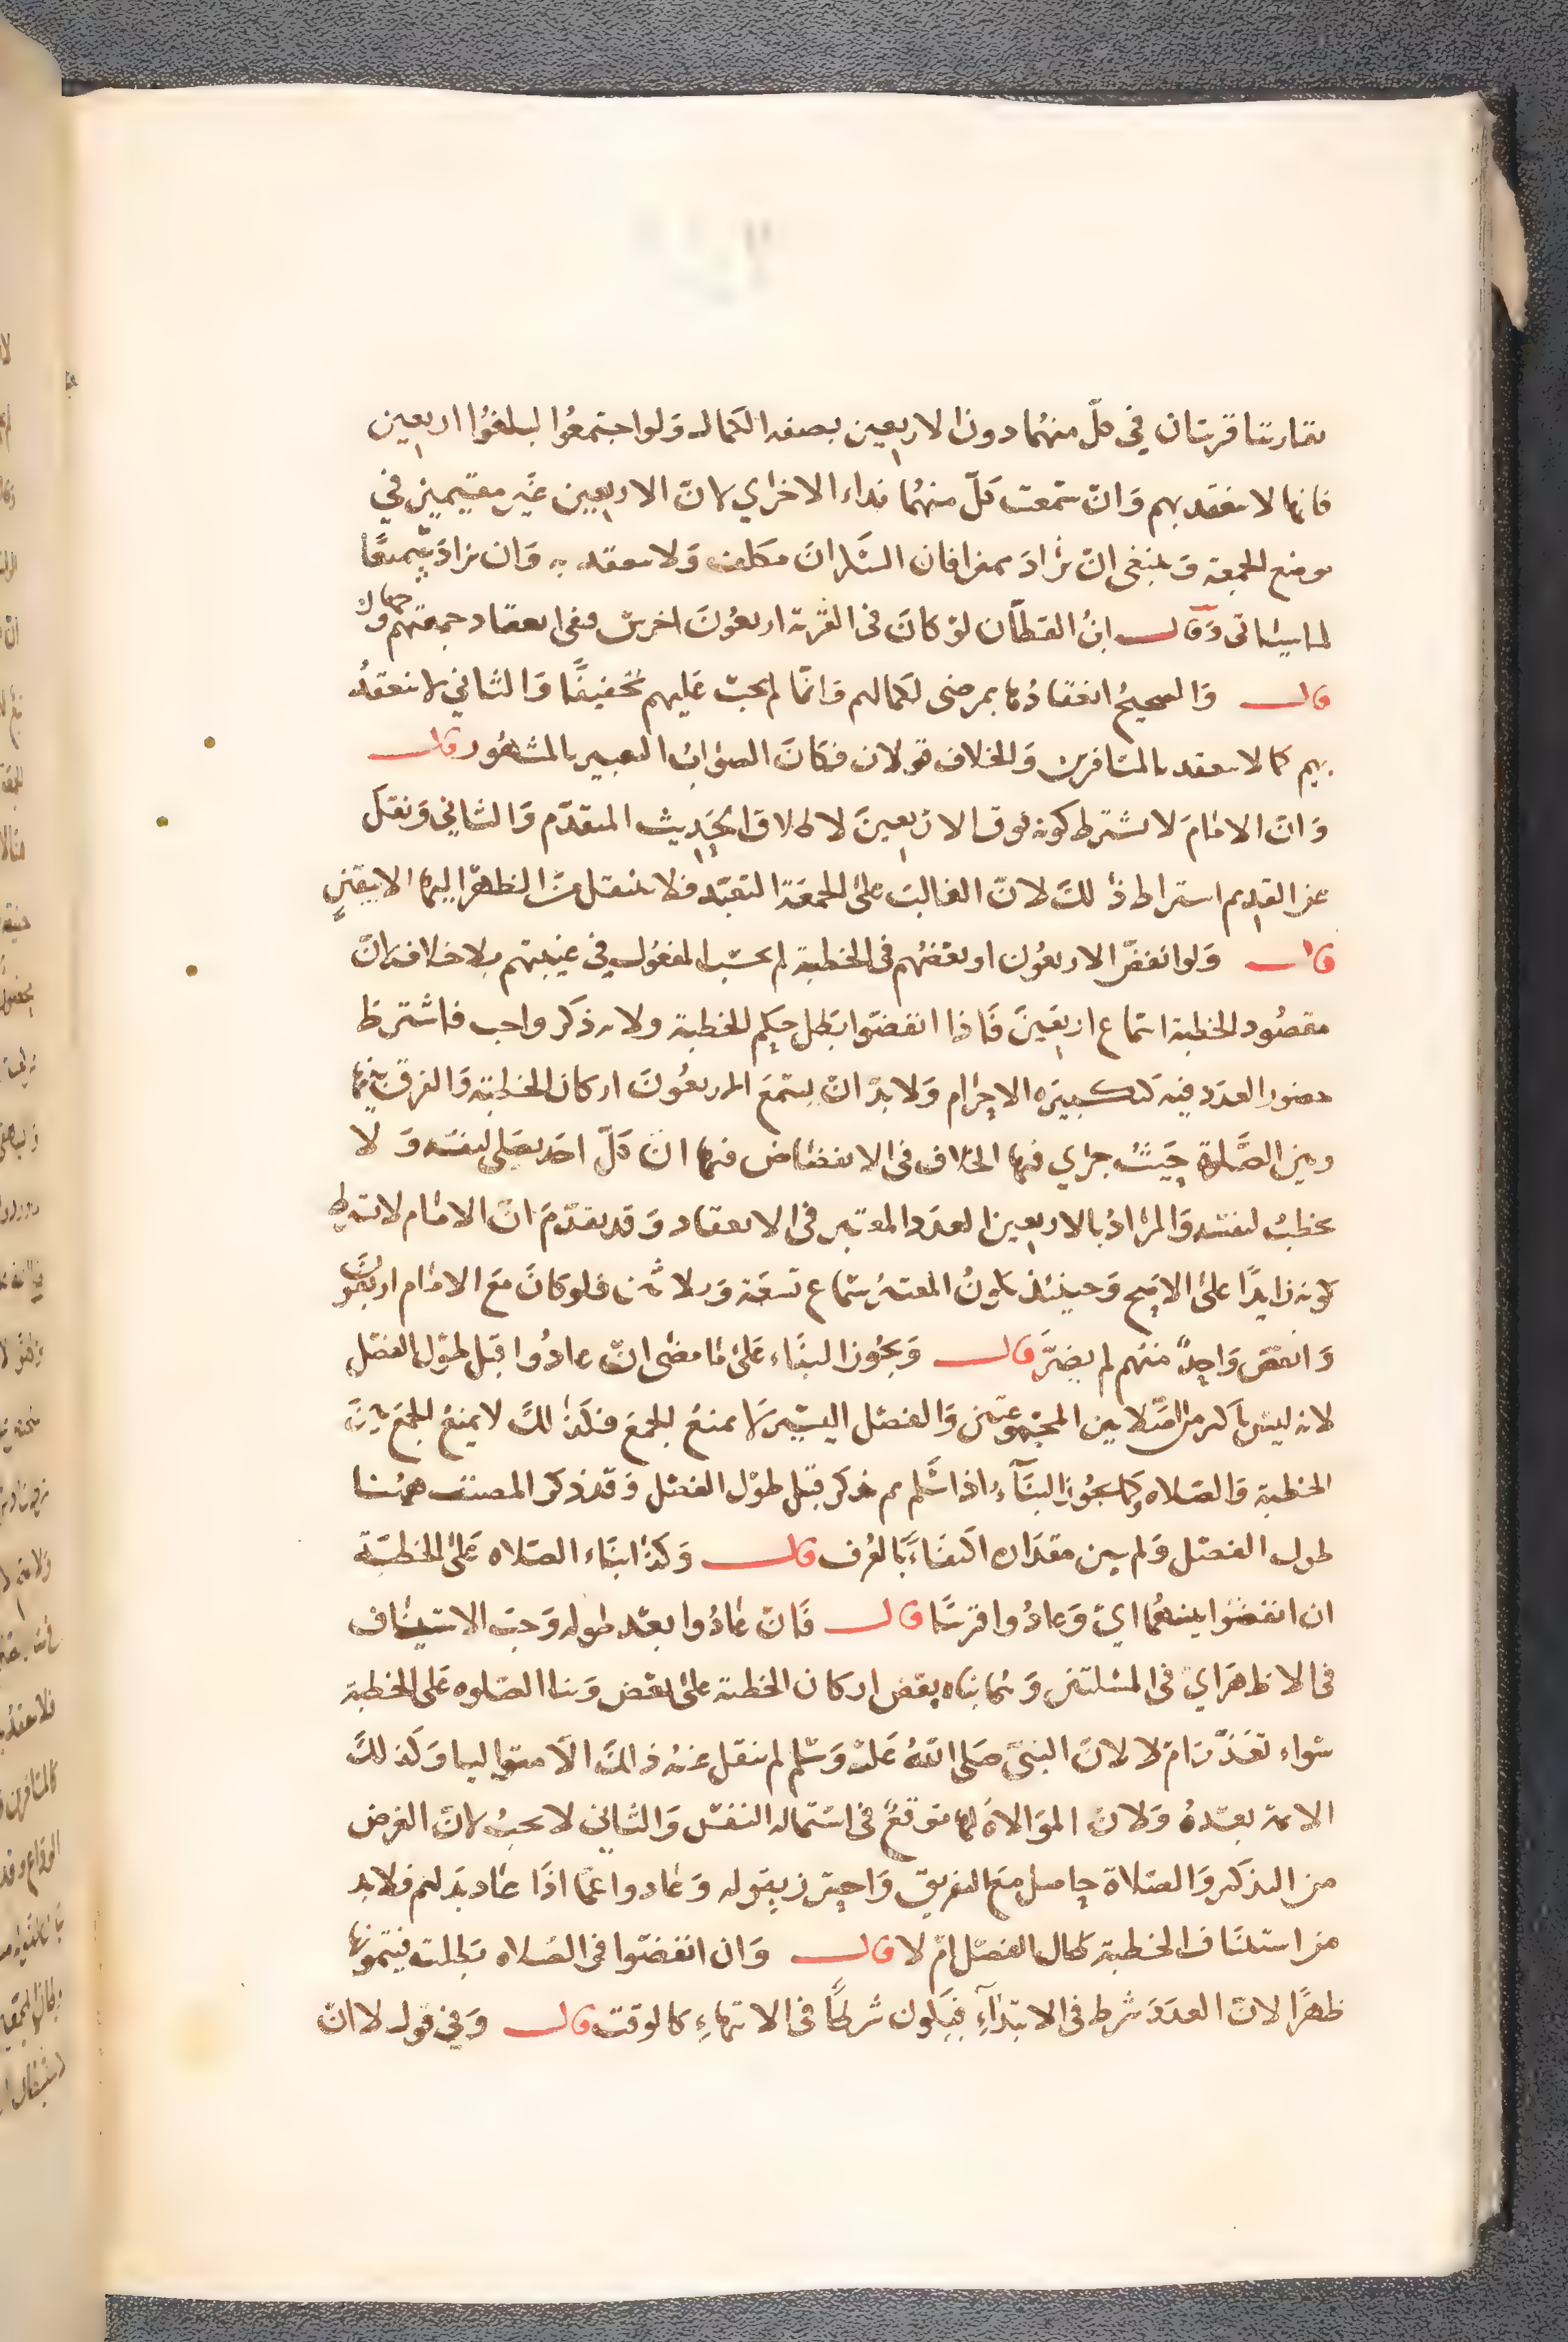 تقاربتا قريتان في كلّ منهُما دون الاربعين بصفه الكمال وَلو اجتمعُوا لبلغُوا اربعين
فانها لا تنعقد بهم وَانْ سَمعت كلّ منهُما نداء الاخرى لانّ الاربعين غَير مقيمين في
موضع الجمعة وَينبغى انْ يُزادَ مميزا فان السّكرانَ مكلف وَلا تنعقد به وَان يزادَ سميعًا
لما سياتى وَقال ابنُ القطّان لوْ كانَ فى القرية اربعُونَ اخرس ففى انعقاد جمعتهم وجهان
قال وَالصحيحُ انعقادُها بمرضى لكمالهم وَانمّا لم يجب عَليهم تخفيفًا وَالثاني لا تنعقدُ
بهم كما لا تنعقد بالمسَافرين وَالخلاف قولان فكانَ الصوابُ التعبير بالمشهُور قال
وَانّ الامَامَ لا يشترط كونه فوق الاربعينَ لاطلاق الحَديث المتقدّم وَالثاني وَنقلَ
عن القديم اشتراط ذلكَ لانّ الغالبَ علىَ الجمعَة التعَبّد فلا ينتقل منَ الظهر اليها الا بيقين
قال وَلو انفضّ الاربعُون او بَعضُهم فى الخطبة لم يحسَب المفعُول في غيبتهم بلا خلاف لانّ
مقصُود الخطبة اسماع اربعينَ فَاذا انفضّوا بَطل حكم الخطبة ولانه ذكر واجب فاشترط
حضور العدَد فيه كتكبيرَه الاحرام وَلا بدّ انْ يسمَع الاربعُونَ اركان الخطبَة وَالفرق بينها
وبين الصَّلوة حَيثُ جرى فيها الخلاف فى الانفضاض فيها انّ كلّ احَد يصَلى لنفسَه وَ لا
يخطبُ لنفسه وَالمرَادُ بالاربعين العدَد المعتبر فى الانعقاد وَقد تقدّمَ انّ الامَام لا يشترط
كونه زايدًا علىَ الاصَح وَحينئذ يكونُ المعتبرُ سَماع تسعَة وَثلاثين فلو كانَ مَع الامَام اربعُونَ
وَانفضّ وَاحدٌ منهُم لم يضرَّ قال وَيجُوز البنَاء علىَ مَا مضىَ انْ عادُوا قبل طوْل الفصْل
لانه ليسَ باكثر من الفصْل بين المجمُوعتين وَالفصْل اليسيرَ لا يمنعُ الجمَع فكذلكَ لا يمنع الجمَع بينَ
الخطبة وَالصّلاه وَكما يجُوز البنَآء اذا سَلم ثم تذكر قبل طوْل الفصْل وَقد ذكر المصنف هُنا
طول الفصْل وَلم يبين مقدَاره اكتفَاءَ بالعُرف قال وَكذا بنَاء الصّلاه عَلى الخطبَة
ان انفضّوا بينهُما اىْ وَعادُوا قريبًا قال فَانْ عَادُوا بعْد طوله وَجبَ الاستينَاف
فى الاظهَر اي فى المسْلتين وَهُما بناء بعَض اركان الخطبة علىَ بعَض وَبنا الصّلوه عَلى الخطبة
سَواء بعُذر امْ لا لانّ النبىّ صَلى اللهُ عَليْه وَسَلم لم ينقل عنهُ ذالكَ الاَ متواليا وَكذلكَ
الائمة بعْدهُ وَلانّ الموَالاة لها موَقعٌ فى اسْتماله النفسْ وَالثاني لا يجبُ لانّ الغرض
من التذكير وَالصّلاة حاصل مَع التفريق وَاحترز بقوله وَعَادوا عمّا اذَا عاد بدَلهم فلا بد
من استئناف الخطبة طال الفصْل امْ لا قال وَان انفضّوا فى الصّلاه بَطلت فيتمونها
ظهرًا لانّ العدَدَ شرط فى الابتدآء فيكون شرطًا فى الانتهاءِ كالوقت قال وَفي قول لا انْ